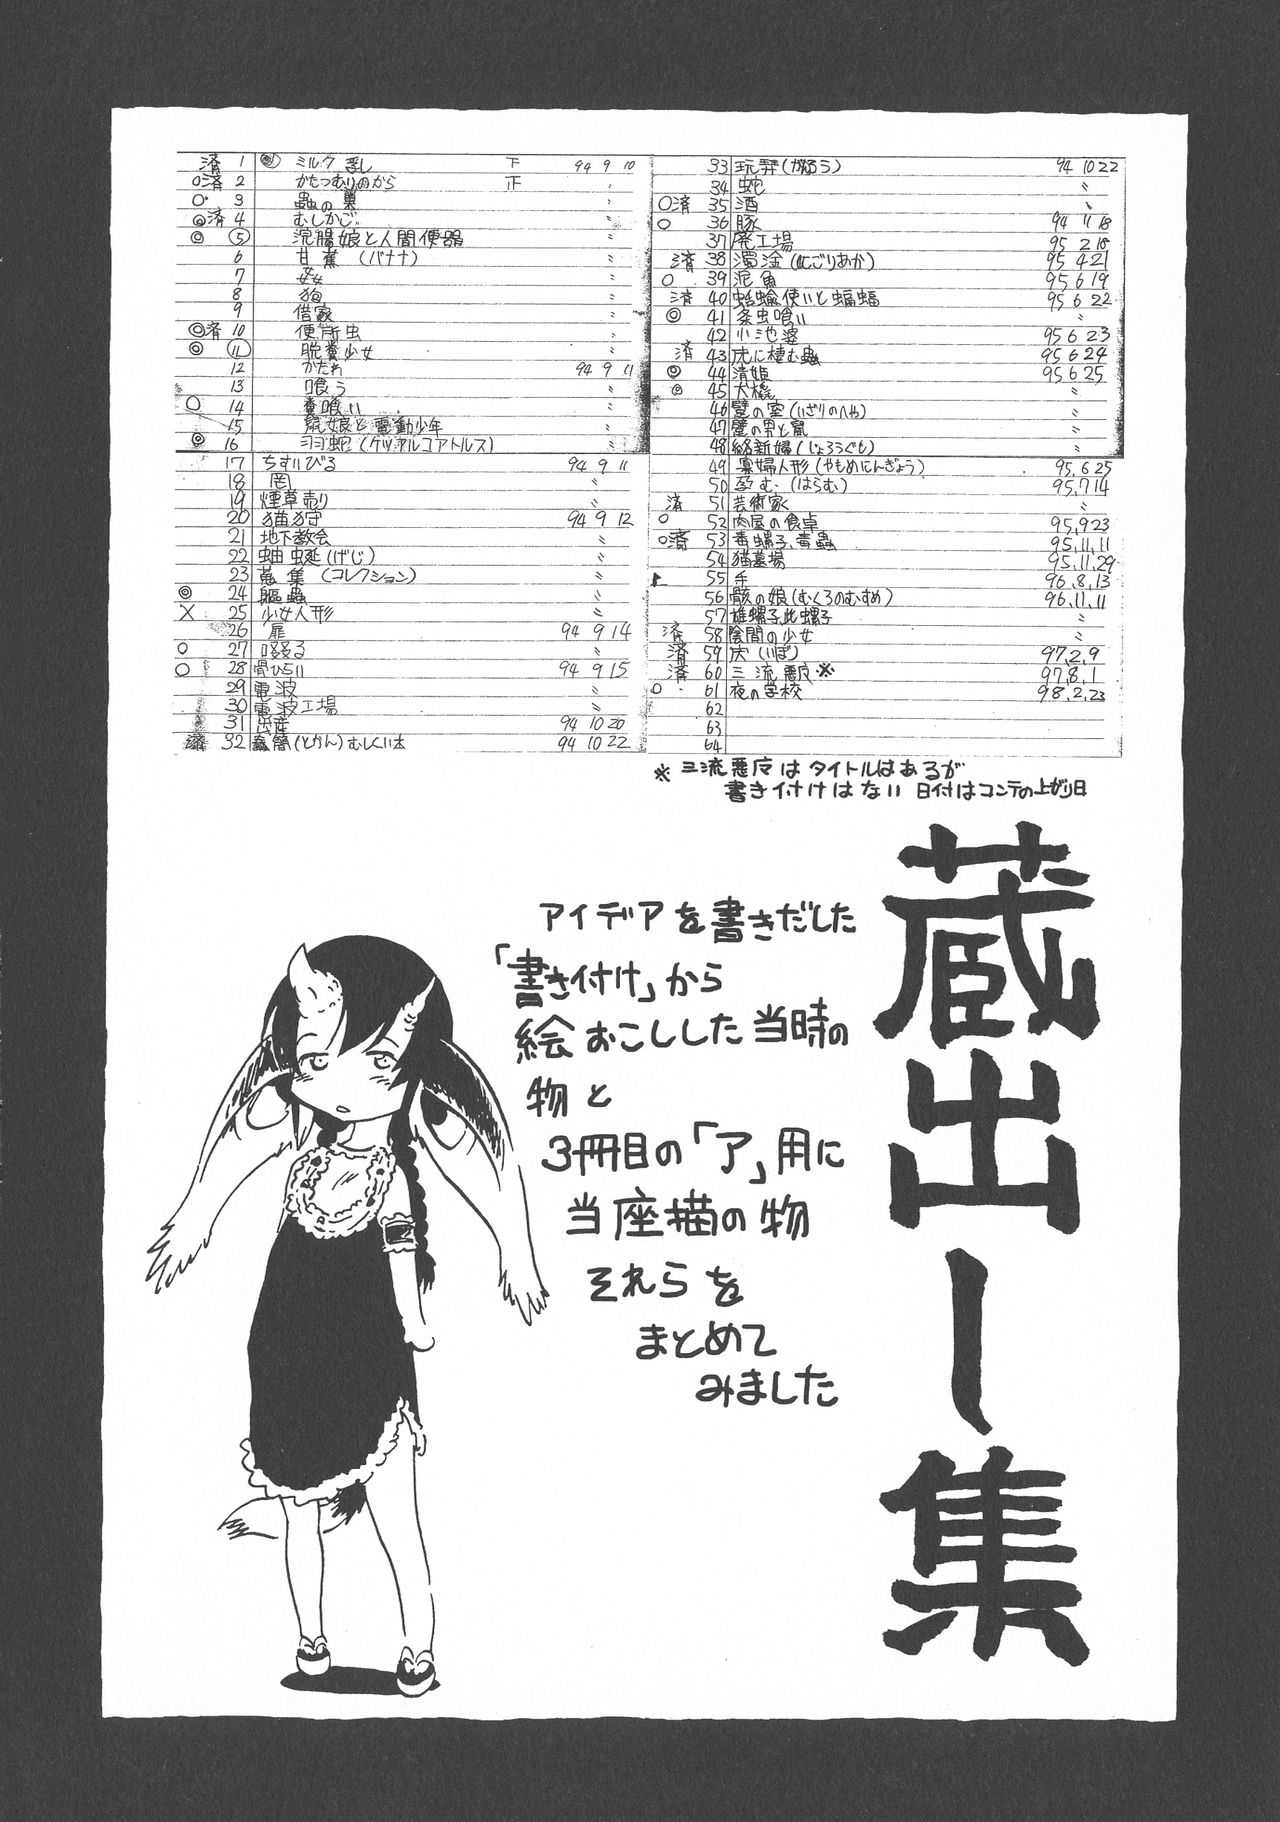 済 1 ミルク 乳し 下 94 9 10
○済 2 かたつむりのから 正 〃
○ 3 蟲の巣 〃
◎済 4 むしかご 〃
◎ ⑤ 浣腸娘と人間便器 〃
6 甘蕉 (バナナ) 〃
7 〃
8 狗 〃
9 借家 〃
◎済 10 便所虫 〃
◎ ⑪ 脱糞少女 〃
12 かたわ 94 9 11
13 喰う 〃
○ 14 糞喰い 〃
15 鼠娘と電動少年 〃
◎ 16 羽蛇 (ケツアルコアトルス) 〃
17 ちすいびる 94 9 11
18 罔 〃
19 煙草売り 〃
20 猫狩守 94 9 12
21 地下教会 〃
22 蚰蜒 (げじ) 〃
23 蒐集 (コレクション) 〃
◎ 24 駆蟲 〃
X 25 少女人形 〃
26 扉 94 9 14
○ 27
○ 28 骨ひろい 94 9 15
29 電波 〃
30 電波工場 〃
31 出産 94 10 20
済 32 (とかん) むしくい本 94 10 22
33 玩弄 (がろう) 94 10 22
34 蛇 〃
○済 35 酒 〃
○ 36 豚 94 11 18
37 廃工場 95 2 18
済 38 濁淦 (にごりあか) 95 4 21
○ 39 泥魚 95 6 19
済 40 蛞蝓使いと蝙蝠 95 6 22
◎ 41 条虫喰い 〃
42 小池婆 95 6 23
済 43 虎に棲む蟲 95 6 24
◎ 44 清姫 95 6 25
◎ 45 犬機 〃
46 躄の室 (いざりのへや) 〃
47 躄の男と鼠 〃
48 絡新婦 (じょろうぐも) 〃
49 寡婦人形 (やもめにんぎょう) 95.6 25
50 孕む (はらむ) 95.7 14
済 51 芸術家 〃
○ 52 肉屋の食卓 95.9 23
○済 53 毒螺子、毒蟲 95.11.11
54 猫墓場 95.11.29
55 手 96.8.13
56 骸の娘 (むくろのむすめ) 96.11.11
57 雄螺子、雌螺子 〃
済 58 陰間の少女 〃
済 59 疣 (いぼ) 97.2.9
済 60 三流悪役 ※ 97.8.1
○ 61 夜の学校 98.2.23
62
63
64
※ 三流悪役はタイトルはあるが
書き付けはない 日付はコンテの上がり日
蔵出し集
アイデアを書きだした
「書き付け」から
絵おこしした当時の
物と
3冊目の「ア」用に
当座描の物
それらを
まとめて
みました